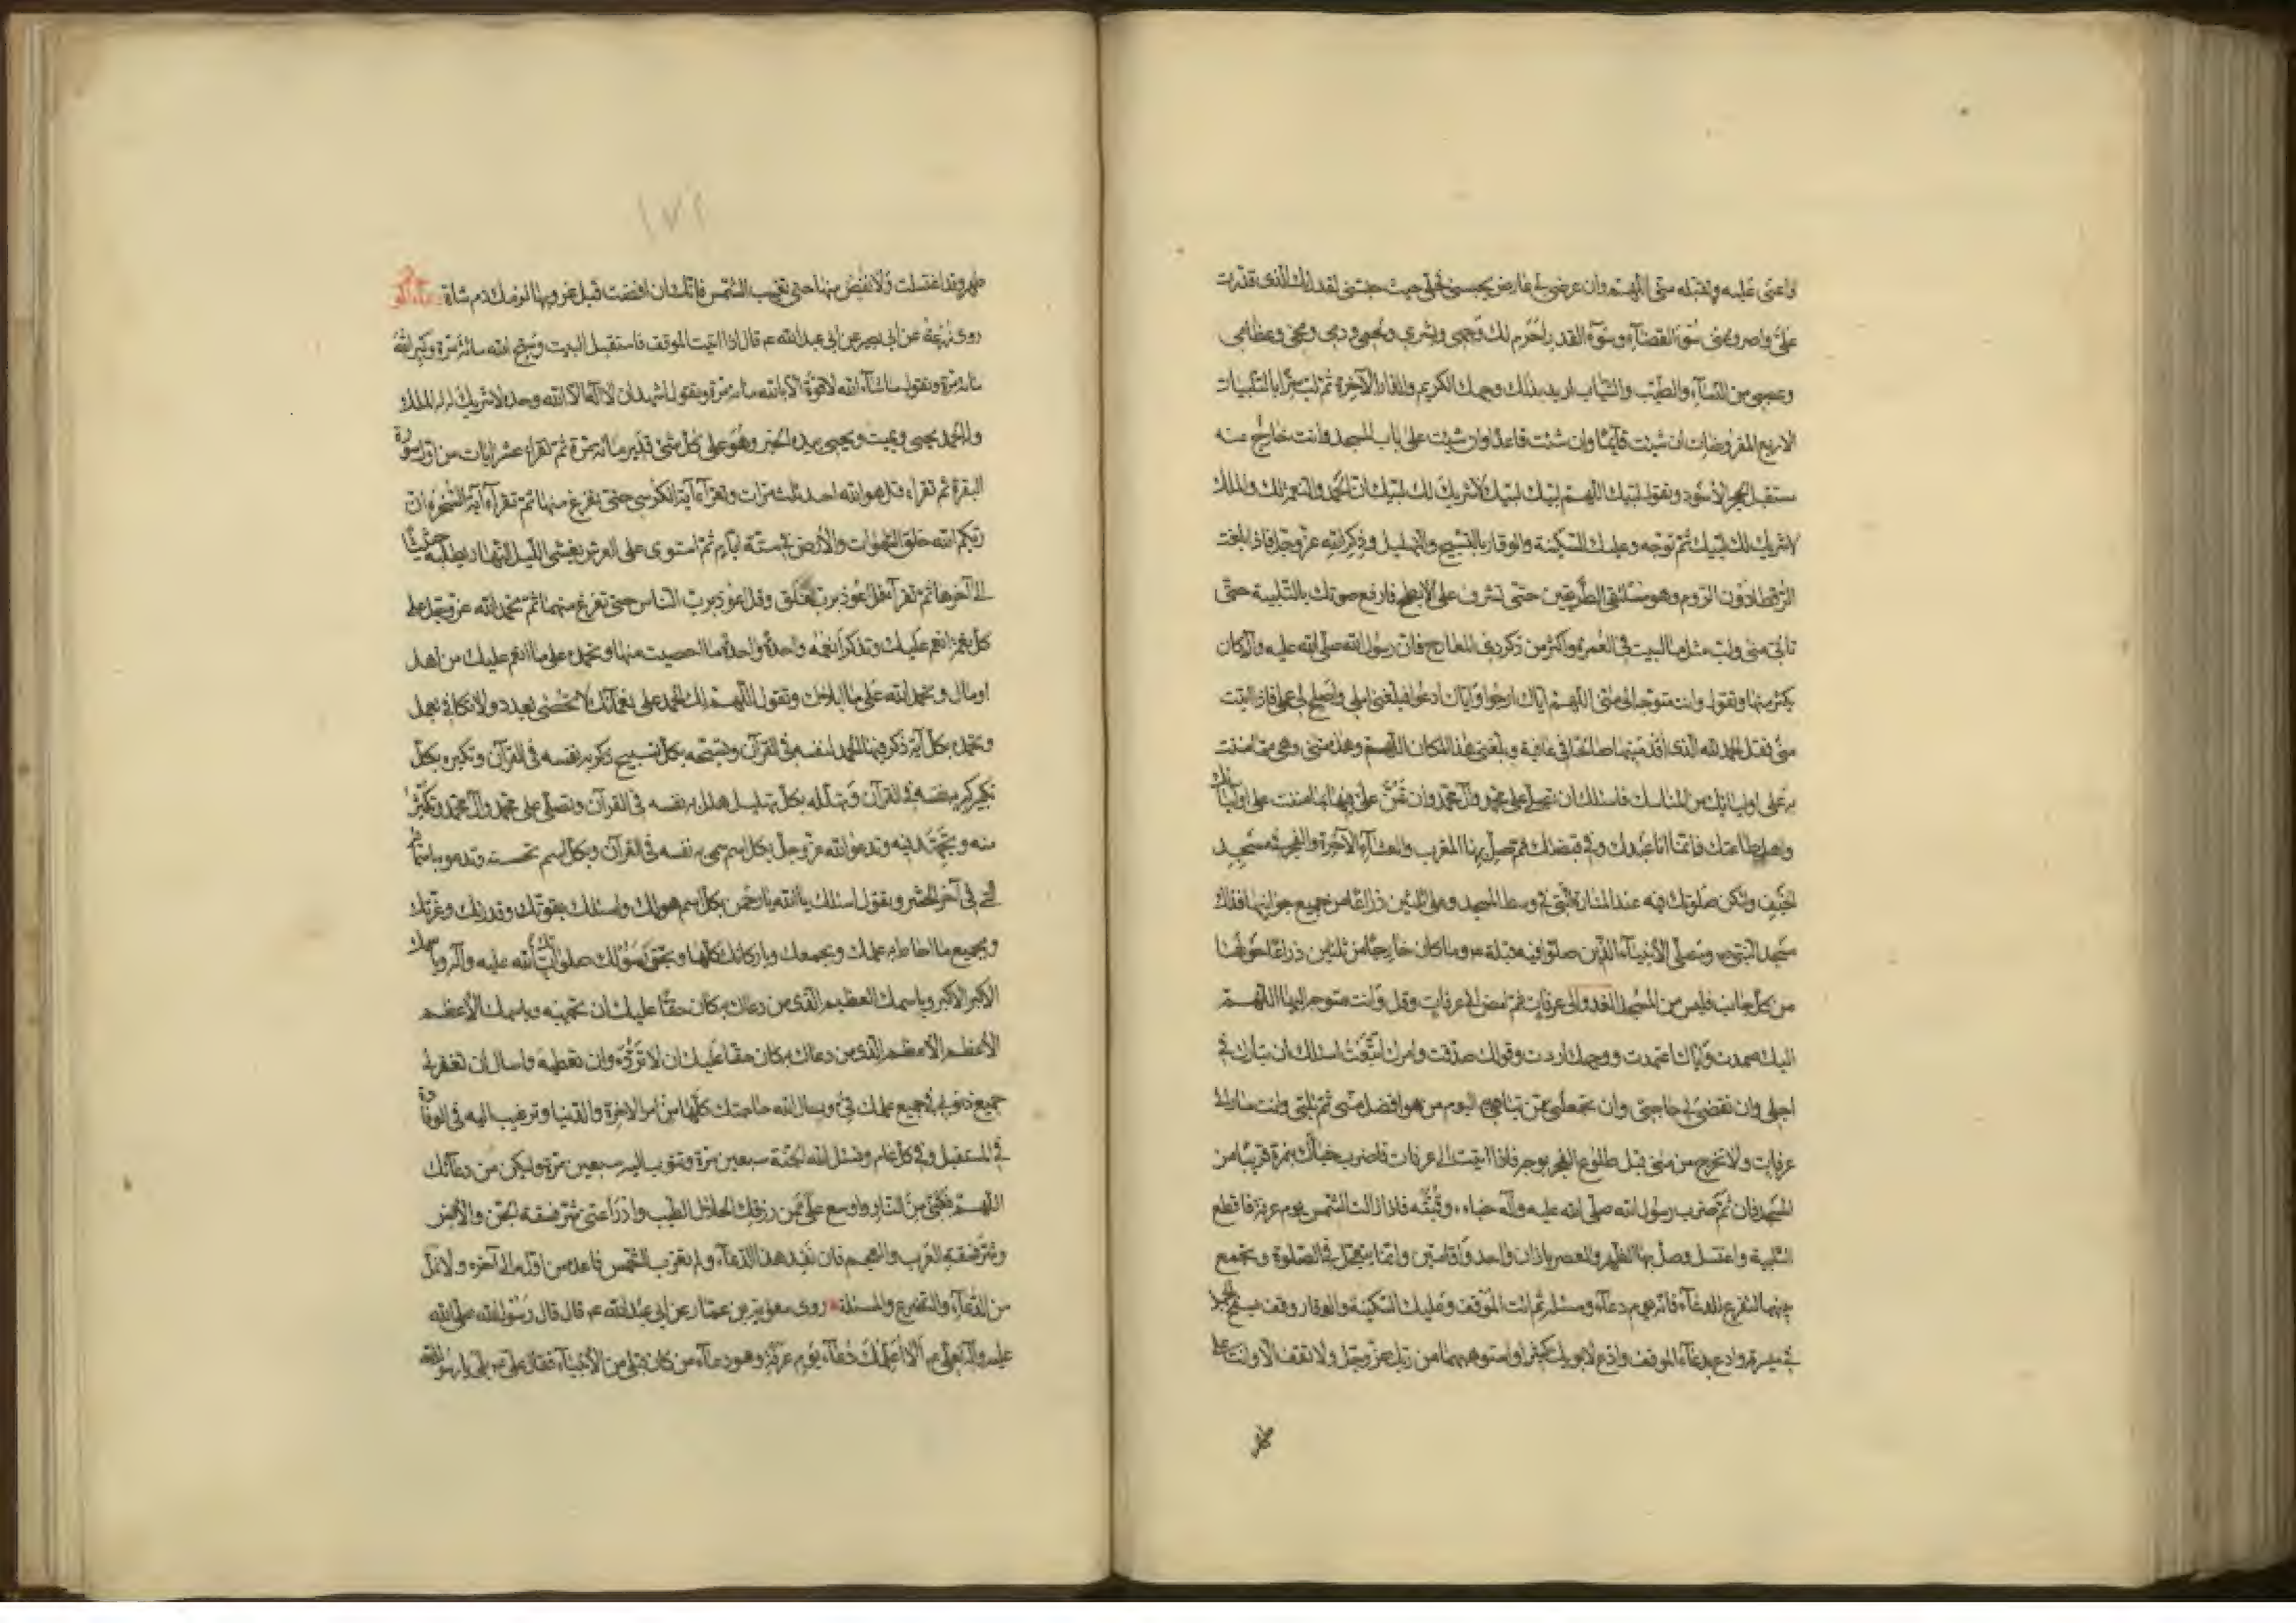 واعني عليه وتقبله مني اللهم وان عرض لي عارض يحبسني فحلني حيث حبستني لقدرك الذي قدرت
علي واصرف عني سوء القضاء وسوء القدر احرم لك وجهي وبشري ولحمي ودمي ومخي وعظامي
وعصبي من النساء والطيب والثياب اريد بذلك وجهك الكريم والدار الآخرة ثم لب سرا بالتلبيات
الاربع المفروضات ان شئت قائما وان شئت قاعدا وان شئت على باب المسجد وانت خارج عنه
مستقبل الحجر الأسود وتقول لبيك اللهم لبيك لبيك لا شريك لك لبيك ان الحمد والنعمة لك والملك
لا شريك لك لبيك ثم توجه وعليك السكينة والوقار بالتسبيح والتهليل وذكر الله عز وجل فاذا بلغت
الرقطا دون الردم وهو ملتقى الطريقين حتى تشرف على الأبطح فارفع صوتك بالتلبية حتى
تاتي منى ولب مثل ما لبيت في العمرة واكثر من ذكر ذي المعارج فان رسول الله صلى الله عليه وآله كان
يكثر منها وتقول وانت متوجه الى منى اللهم اياك ارجو واياك ادعوا فبلغني املي واصلح لي عملي فاذا اتيت
منى فقل الحمد لله الذي اقدمنيها صالحا في عافية وبلغني هذا المكان اللهم وهذه منى وهي مما مننت
به على اوليائك من المناسك فاسئلك ان تصلي على محمد وآل محمد وان تمن علي فيها بما مننت على اوليائك
واهل طاعتك فانما انا عبدك وفي قبضتك ثم صل بها المغرب والعشاء الآخرة والفجر في مسجد
الخيف وليكن صلوتك فيه عند المنارة التي في وسط المسجد وعلى ثلثين ذراعا من جميع جوانبها فذلك
مسجد النبي ص ومصلى الأنبياء الذين صلوا فيه قبله ص وما كان خارجا من ثلثين ذراعا حولها
من كل جانب فليس من المسجد الغدو الى عرفات ثم امض الى عرفات وقل وانت متوجه اليها اللهم
اليك صمدت واياك اعتمدت ووجهك اردت وقولك صدقت وامرك اتبعت اسئلك ان تبارك لي في
اجلي وان تقضي لي حاجتي وان تجعلني ممن تباهي به اليوم من هو افضل مني ثم تلبي وانت مار الى
عرفات ولا تخرج من منى قبل طلوع الفجر بوجه فاذا اتيت الى عرفات فاضرب خباك بنمرة قريبا من
المسجد فان ثم ضرب رسول الله صلى الله عليه وآله خباءه وقبته فاذا زالت الشمس يوم عرفة فاقطع
التلبية واغتسل وصل بها الظهر والعصر باذان واحد واقامتين وانما يتعجل في الصلوة وتجمع
بينهما لتفرغ للدعاء فانه يوم دعاء ومسئلة ثم ائت الموقف وعليك السكينة والوقار وقف بسفح الجبل
في ميسرته وادع بدعاء الموقف وادع لابويك كثيرا واستوهبهما من ربك عز وجل ولا تقف الا وانت على
طهر وقد اغتسلت ولا تفض منها حتى تغيب الشمس فانك ان افضت قبل غروبها لزمك دم شاة
روى زرعة عن ابي بصير عن ابي عبد الله ع قال اذا اتيت الموقف فاستقبل البيت وتسبح الله مائة مرة وكبر الله
مائة مرة وتقول ما شاء الله لا قوة الا بالله مائة مرة وتقول اشهد ان لا اله الا الله وحده لا شريك له له الملك
وله الحمد يحيي ويميت ويحيي بيده الخير وهو على كل شئ قدير مائة مرة ثم تقراء عشر ايات من اول سورة
البقرة ثم تقراء قل هو الله احد ثلث مرات وتقراء آية الكرسي حتى تفرغ منها ثم تقراء آية السخرة ان
ربكم الله خلق السموات والأرض في ستة ايام ثم استوى على العرش يغشي الليل النهار يطلبه حثيثا
الى آخرها ثم تقرا قل اعوذ برب الفلق وقل اعوذ برب الناس حتى تفرغ منهما ثم تحمد الله عز وجل على
كل نعمة انعم عليك وتذكر انعمه واحدة واحدة ما احصيت منها وتحمده على ما انعم عليك من اهل
او مال وتحمد الله على ما ابلاك وتقول اللهم لك الحمد على نعمائك لا تحصى بعدد ولا تكافى بعمل
وتحمده بكل آية ذكر فيها الحمد لنفسه في القرآن وتسبحه بكل تسبيح ذكر به نفسه في القرآن وتكبره بكل
تكبير كبر به نفسه في القرآن وتهلله بكل تهليل هلل به نفسه في القرآن وتصلي على محمد وآل محمد وتكثر
منه وتجتهد فيه وتدعو الله عز وجل بكل اسم سمى به نفسه في القرآن وبكل اسم تحسنه وتدعوه باسمائه
التي في آخر الحشر وتقول اسئلك يا الله يا رحمن بكل اسم هو لك واسئلك بقوتك وقدرتك وعزتك
وبجميع ما احاط به علمك وبجمعك وباركانك كلها وبحق رسولك صلوات الله عليه وآله وباسمك
الاكبر الاكبر وباسمك العظيم الذي من دعاك به كان حقا عليك ان تجيبه وباسمك الأعظم
الأعظم الأعظم الذي من دعاك به كان حقا عليك ان لا ترده وان تعطيه ما سال ان تغفر لي
جميع ذنوبي في جميع علمك في وتسال الله حاجتك كلها من امر الآخرة والدنيا وترغب اليه في الوفادة
في المستقبل وفي كل عام وتسئل الله الجنة سبعين مرة وتتوب اليه سبعين مرة وليكن من دعائك
اللهم فكني من النار واوسع علي من رزقك الحلال الطيب وادرأ عني شر فسقة الجن والأنس
وشر فسقة العرب والعجم فان نفد هذا الدعاء ولم تغرب الشمس فاعده من اوله الى آخره ولا تمل
من الدعاء والتضرع والمسئلة روى معوية بن عمار عن ابي عبد الله ع قال قال رسول الله صلى الله
عليه وآله لعلي ع ألا اعلمك دعاء يوم عرفة وهو دعاء من كان قبلي من الأنبياء فقال علي ع بلى يا رسول الله